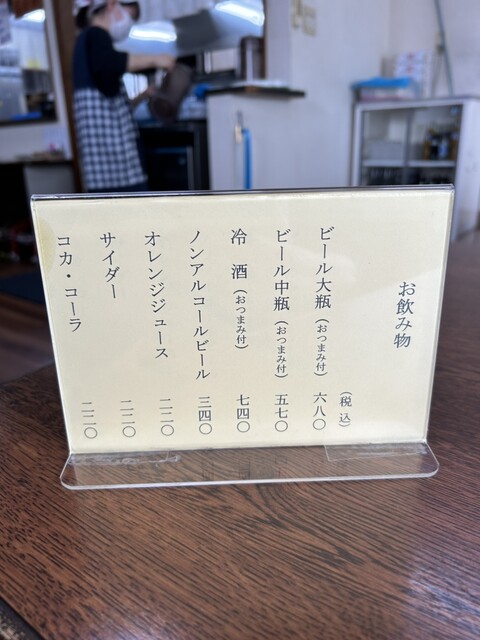 お飲み物
（税込）
ビール大瓶（おつまみ付）六八〇
ビール中瓶（おつまみ付）五七〇
冷酒（おつまみ付）七四〇
ノンアルコールビール 三四〇
オレンジジュース 二二〇
サイダー 二二〇
コカ・コーラ 二二〇